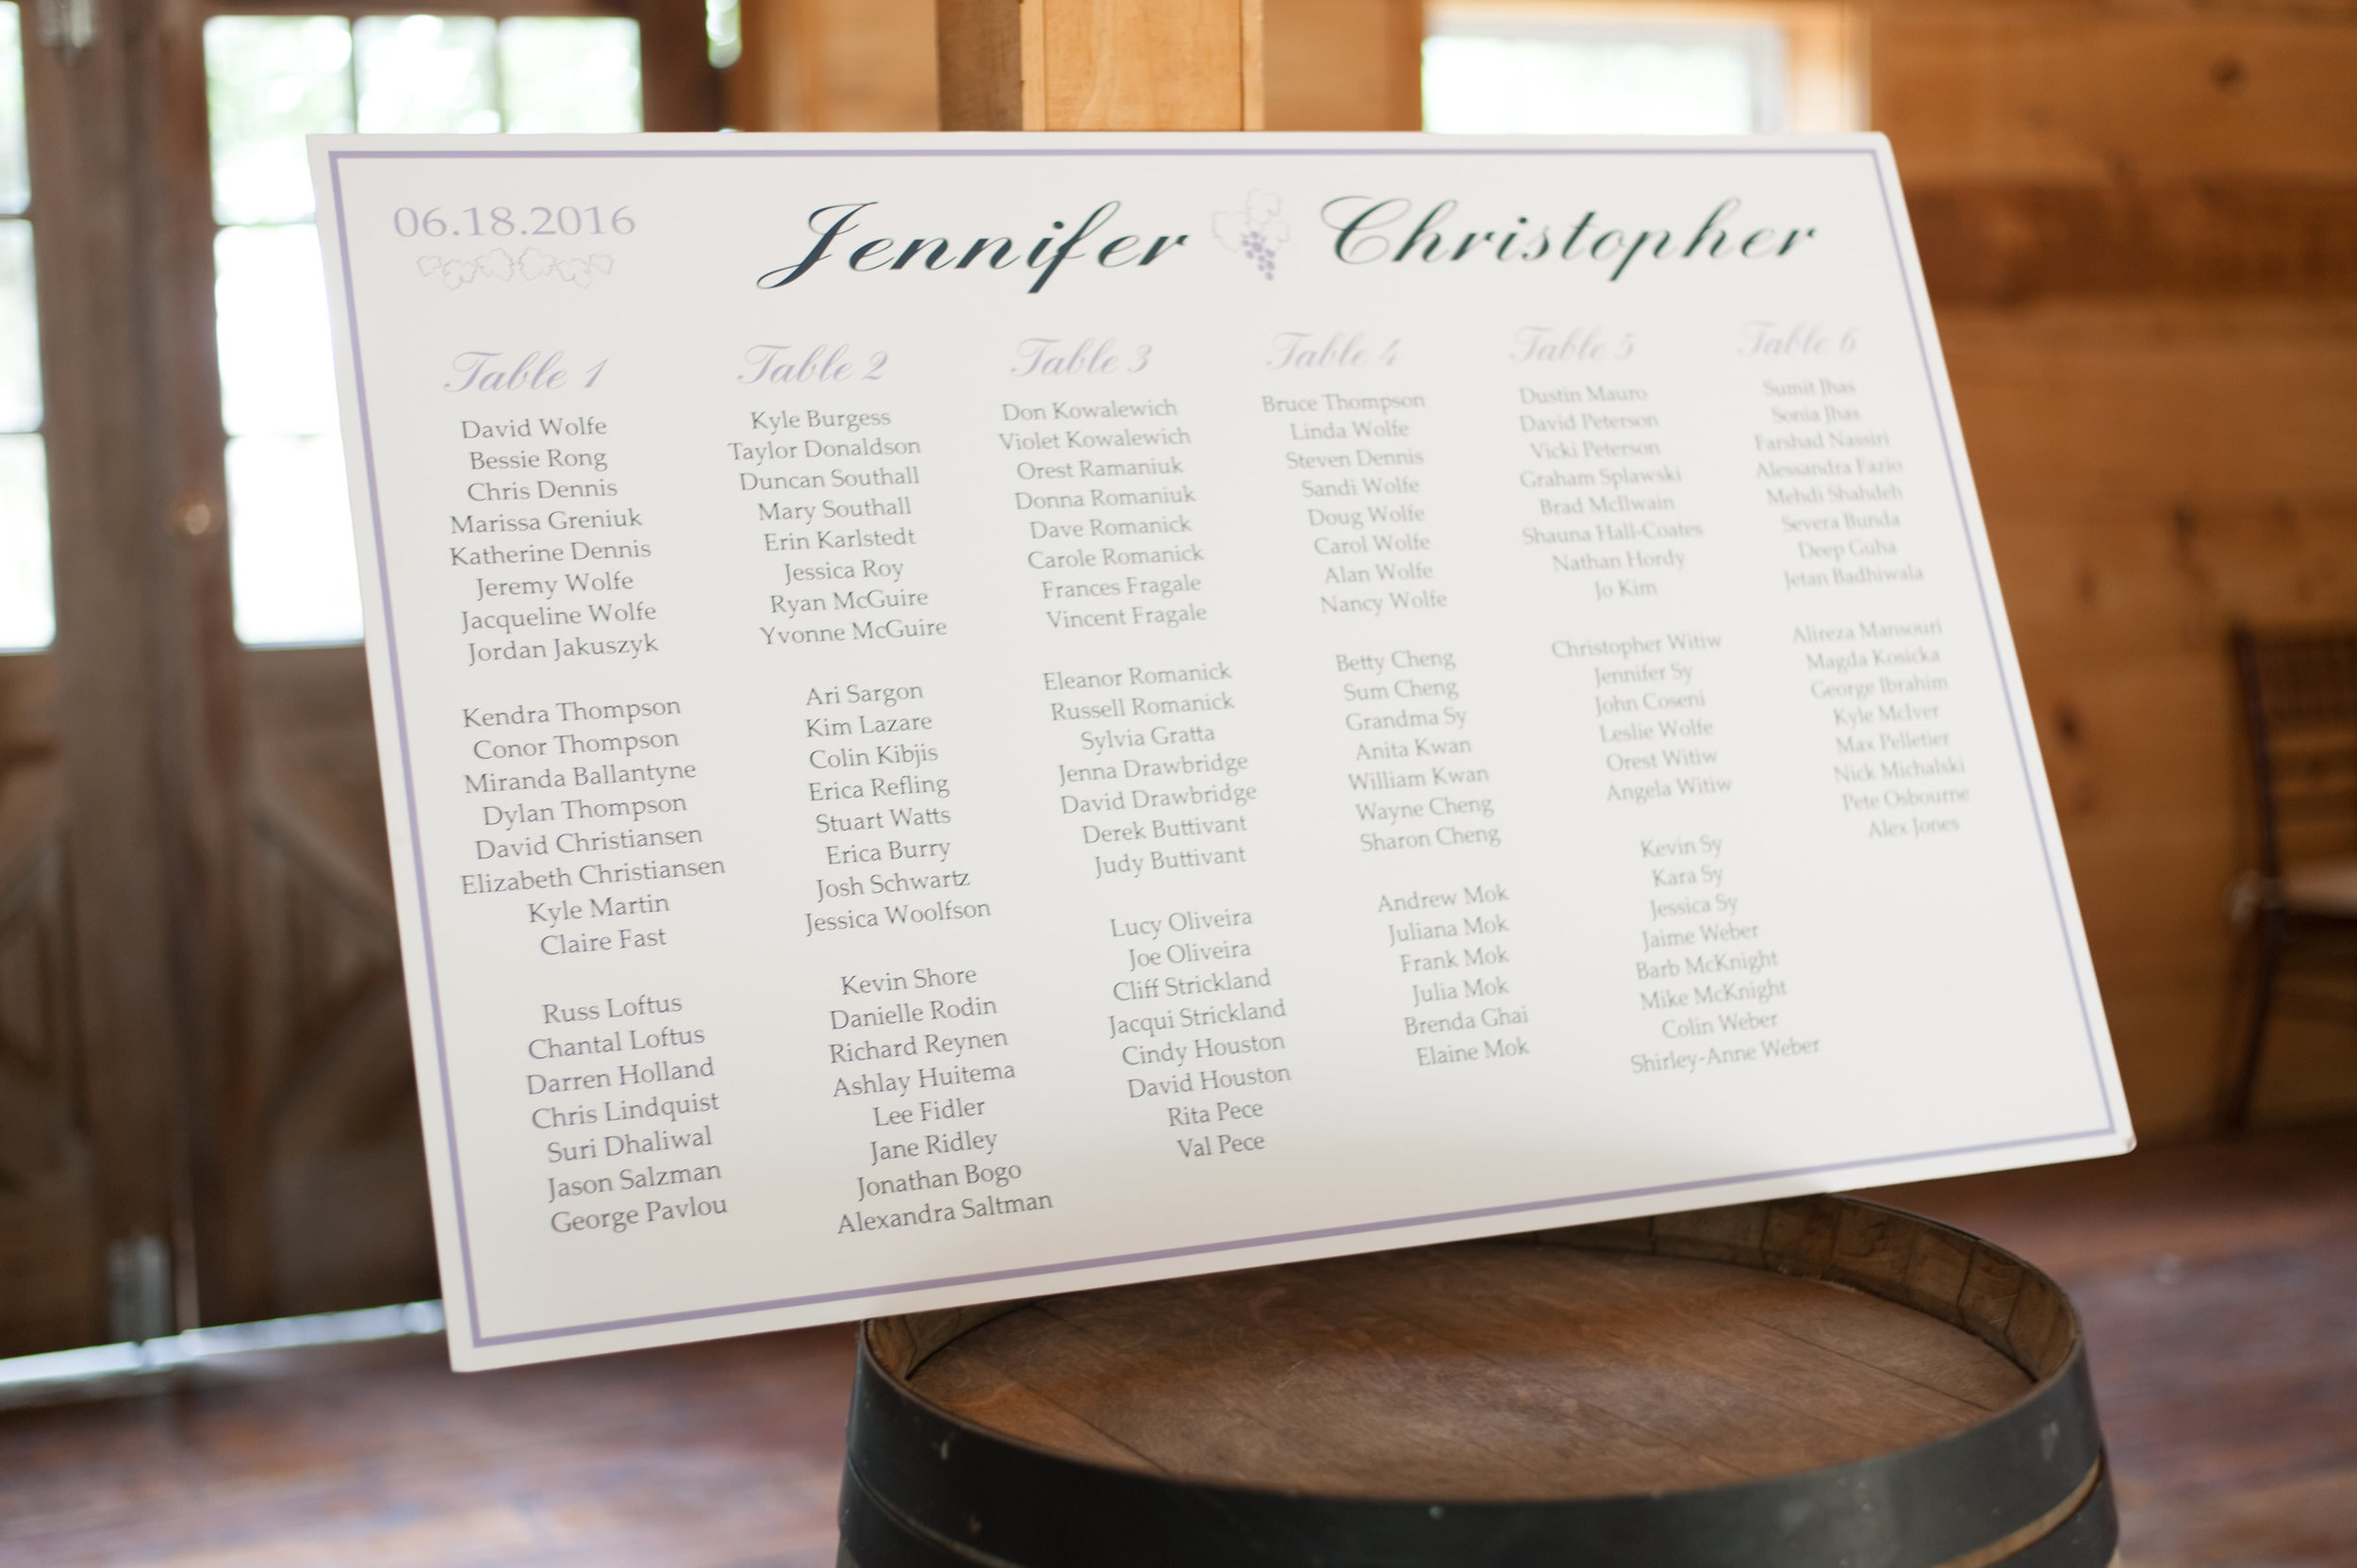 06.18.2016
Jennifer Christopher
Table 1
David Wolfe
Bessie Rong
Chris Dennis
Marissa Greniuk
Katherine Dennis
Jeremy Wolfe
Jacqueline Wolfe
Jordan Jakuszyk
Kendra Thompson
Conor Thompson
Miranda Ballantyne
Dylan Thompson
David Christiansen
Elizabeth Christiansen
Kyle Martin
Claire Fast
Russ Loftus
Chantal Loftus
Darren Holland
Chris Lindquist
Suri Dhaliwal
Jason Salzman
George Pavlou
Table 2
Kyle Burgess
Taylor Donaldson
Duncan Southall
Mary Southall
Erin Karlstedt
Jessica Roy
Ryan McGuire
Yvonne McGuire
Ari Sargon
Kim Lazare
Colin Kibjis
Erica Refling
Stuart Watts
Erica Burry
Josh Schwartz
Jessica Woolfson
Kevin Shore
Danielle Rodin
Richard Reynen
Ashlay Huitema
Lee Fidler
Jane Ridley
Jonathan Bogo
Alexandra Saltman
Table 3
Don Kowalewich
Violet Kowalewich
Orest Ramaniuk
Donna Romaniuk
Dave Romanick
Carole Romanick
Frances Fragale
Vincent Fragale
Eleanor Romanick
Russell Romanick
Sylvia Gratta
Jenna Drawbridge
David Drawbridge
Derek Buttivant
Judy Buttivant
Lucy Oliveira
Joe Oliveira
Cliff Strickland
Jacqui Strickland
Cindy Houston
David Houston
Rita Pece
Val Pece
Table 4
Bruce Thompson
Linda Wolfe
Steven Dennis
Sandi Wolfe
Doug Wolfe
Carol Wolfe
Alan Wolfe
Nancy Wolfe
Betty Cheng
Sum Cheng
Grandma Sy
Anita Kwan
William Kwan
Wayne Cheng
Sharon Cheng
Andrew Mok
Juliana Mok
Frank Mok
Julia Mok
Brenda Ghai
Elaine Mok
Table 5
Dustin Mauro
David Peterson
Vicki Peterson
Graham Splawski
Brad McIlwain
Shauna Hall-Coates
Nathan Hordy
Jo Kim
Christopher Witiw
Jennifer Sy
John Coseni
Leslie Wolfe
Orest Witiw
Angela Witiw
Kevin Sy
Kara Sy
Jessica Sy
Jaime Weber
Barb McKnight
Mike McKnight
Colin Weber
Shirley-Anne Weber
Table 6
Sumit Jhas
Sonia Jhas
Farshad Nassiri
Alessandra Fazio
Mehdi Shahdeh
Severa Bunda
Deep Guha
Jetan Badhiwala
Alireza Mansouri
Magda Kosicka
George Ibrahim
Kyle McIver
Max Pelletier
Nick Michalski
Pete Osbourne
Alex Jones